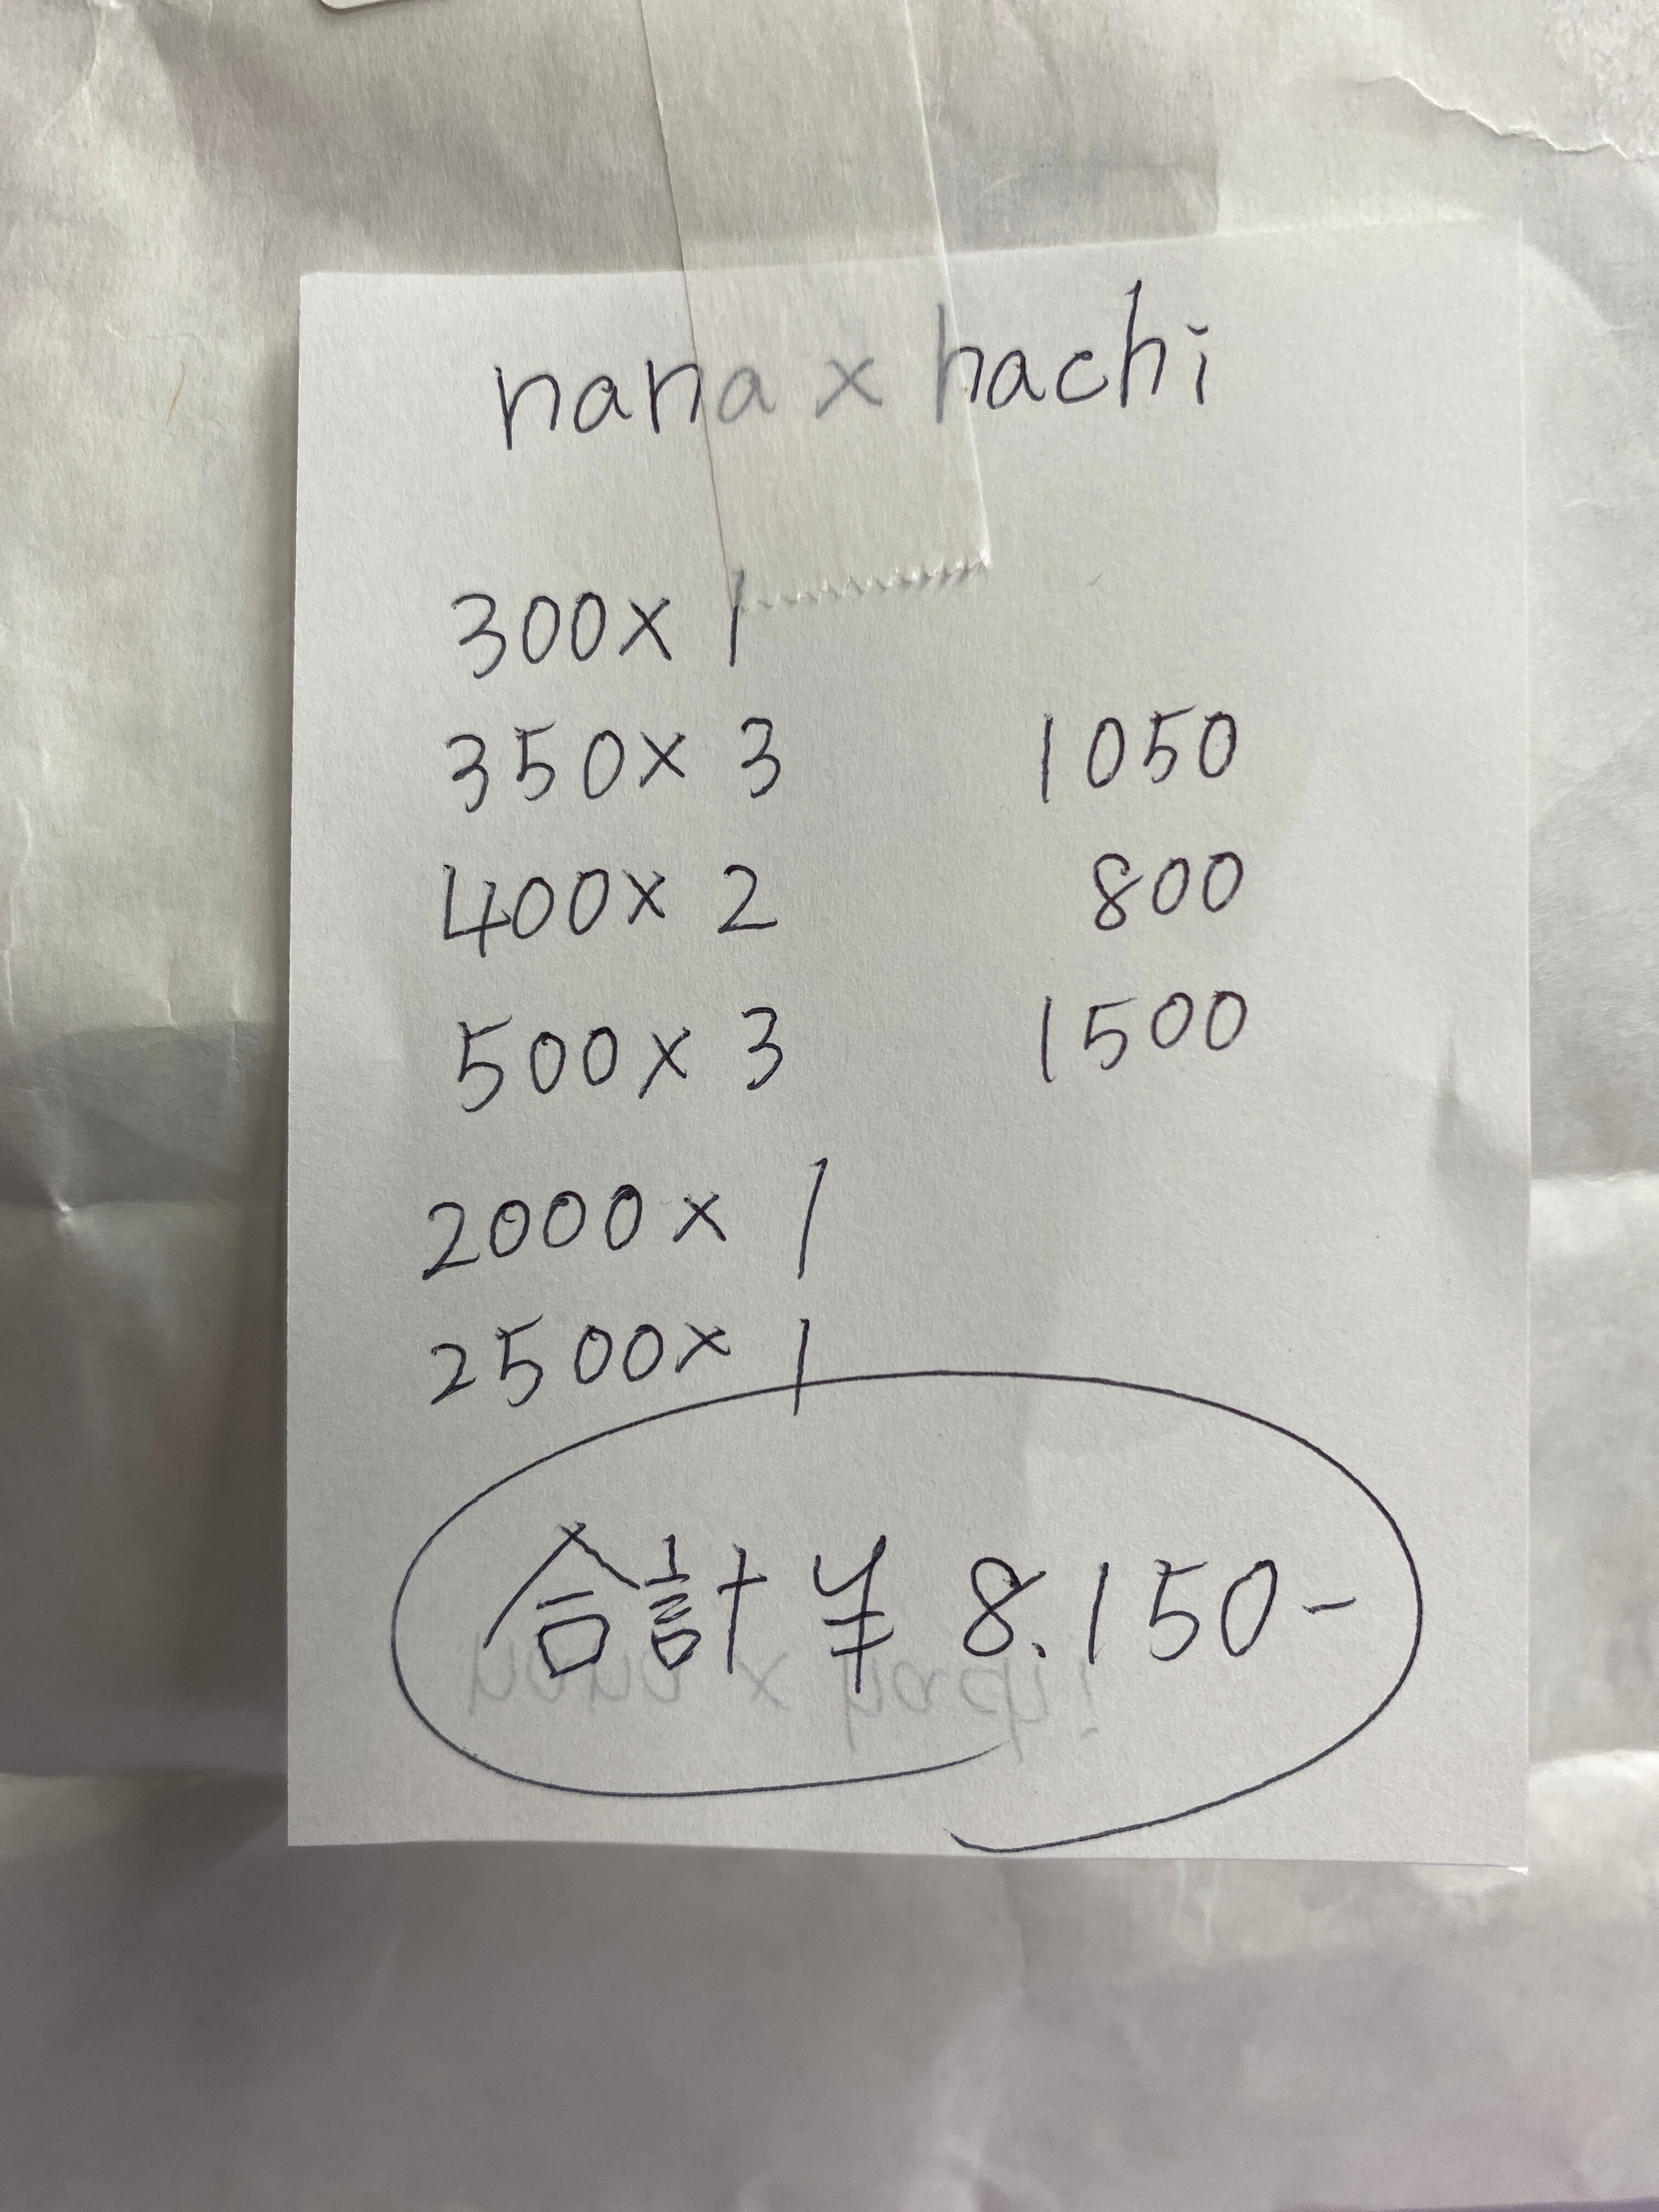 nana x hachi
300 x 1
350 x 3 1050
400 x 2 800
500 x 3 1500
2000 x 1
2500 x 1
合計 ¥ 8.150-
nana x hachi